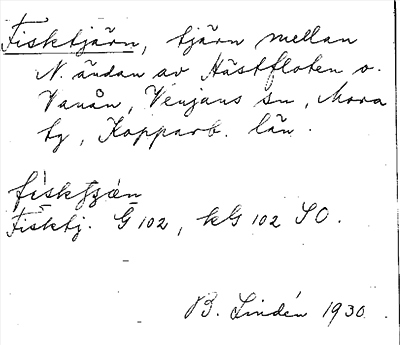 Fisktjärn, tjärn mellan
N. ändan av Hästfloten o.
Vanån, Venjans sn, Mora
tg, Kopparb. län.
Fisktj. G 102, kG 102 SO.
B. Lindén 1930.